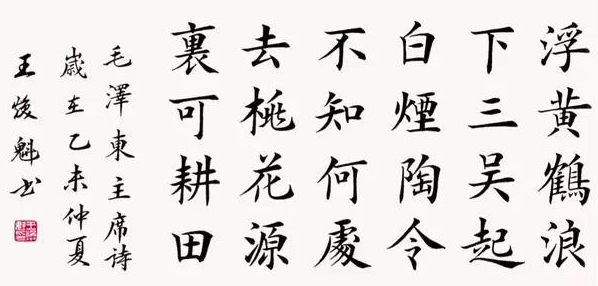 浮黃鶴浪
下三吳起
白煙陶令
不知何處
去桃花源
裏可耕田
毛澤東主席詩
歲在乙未仲夏
王焌魁书